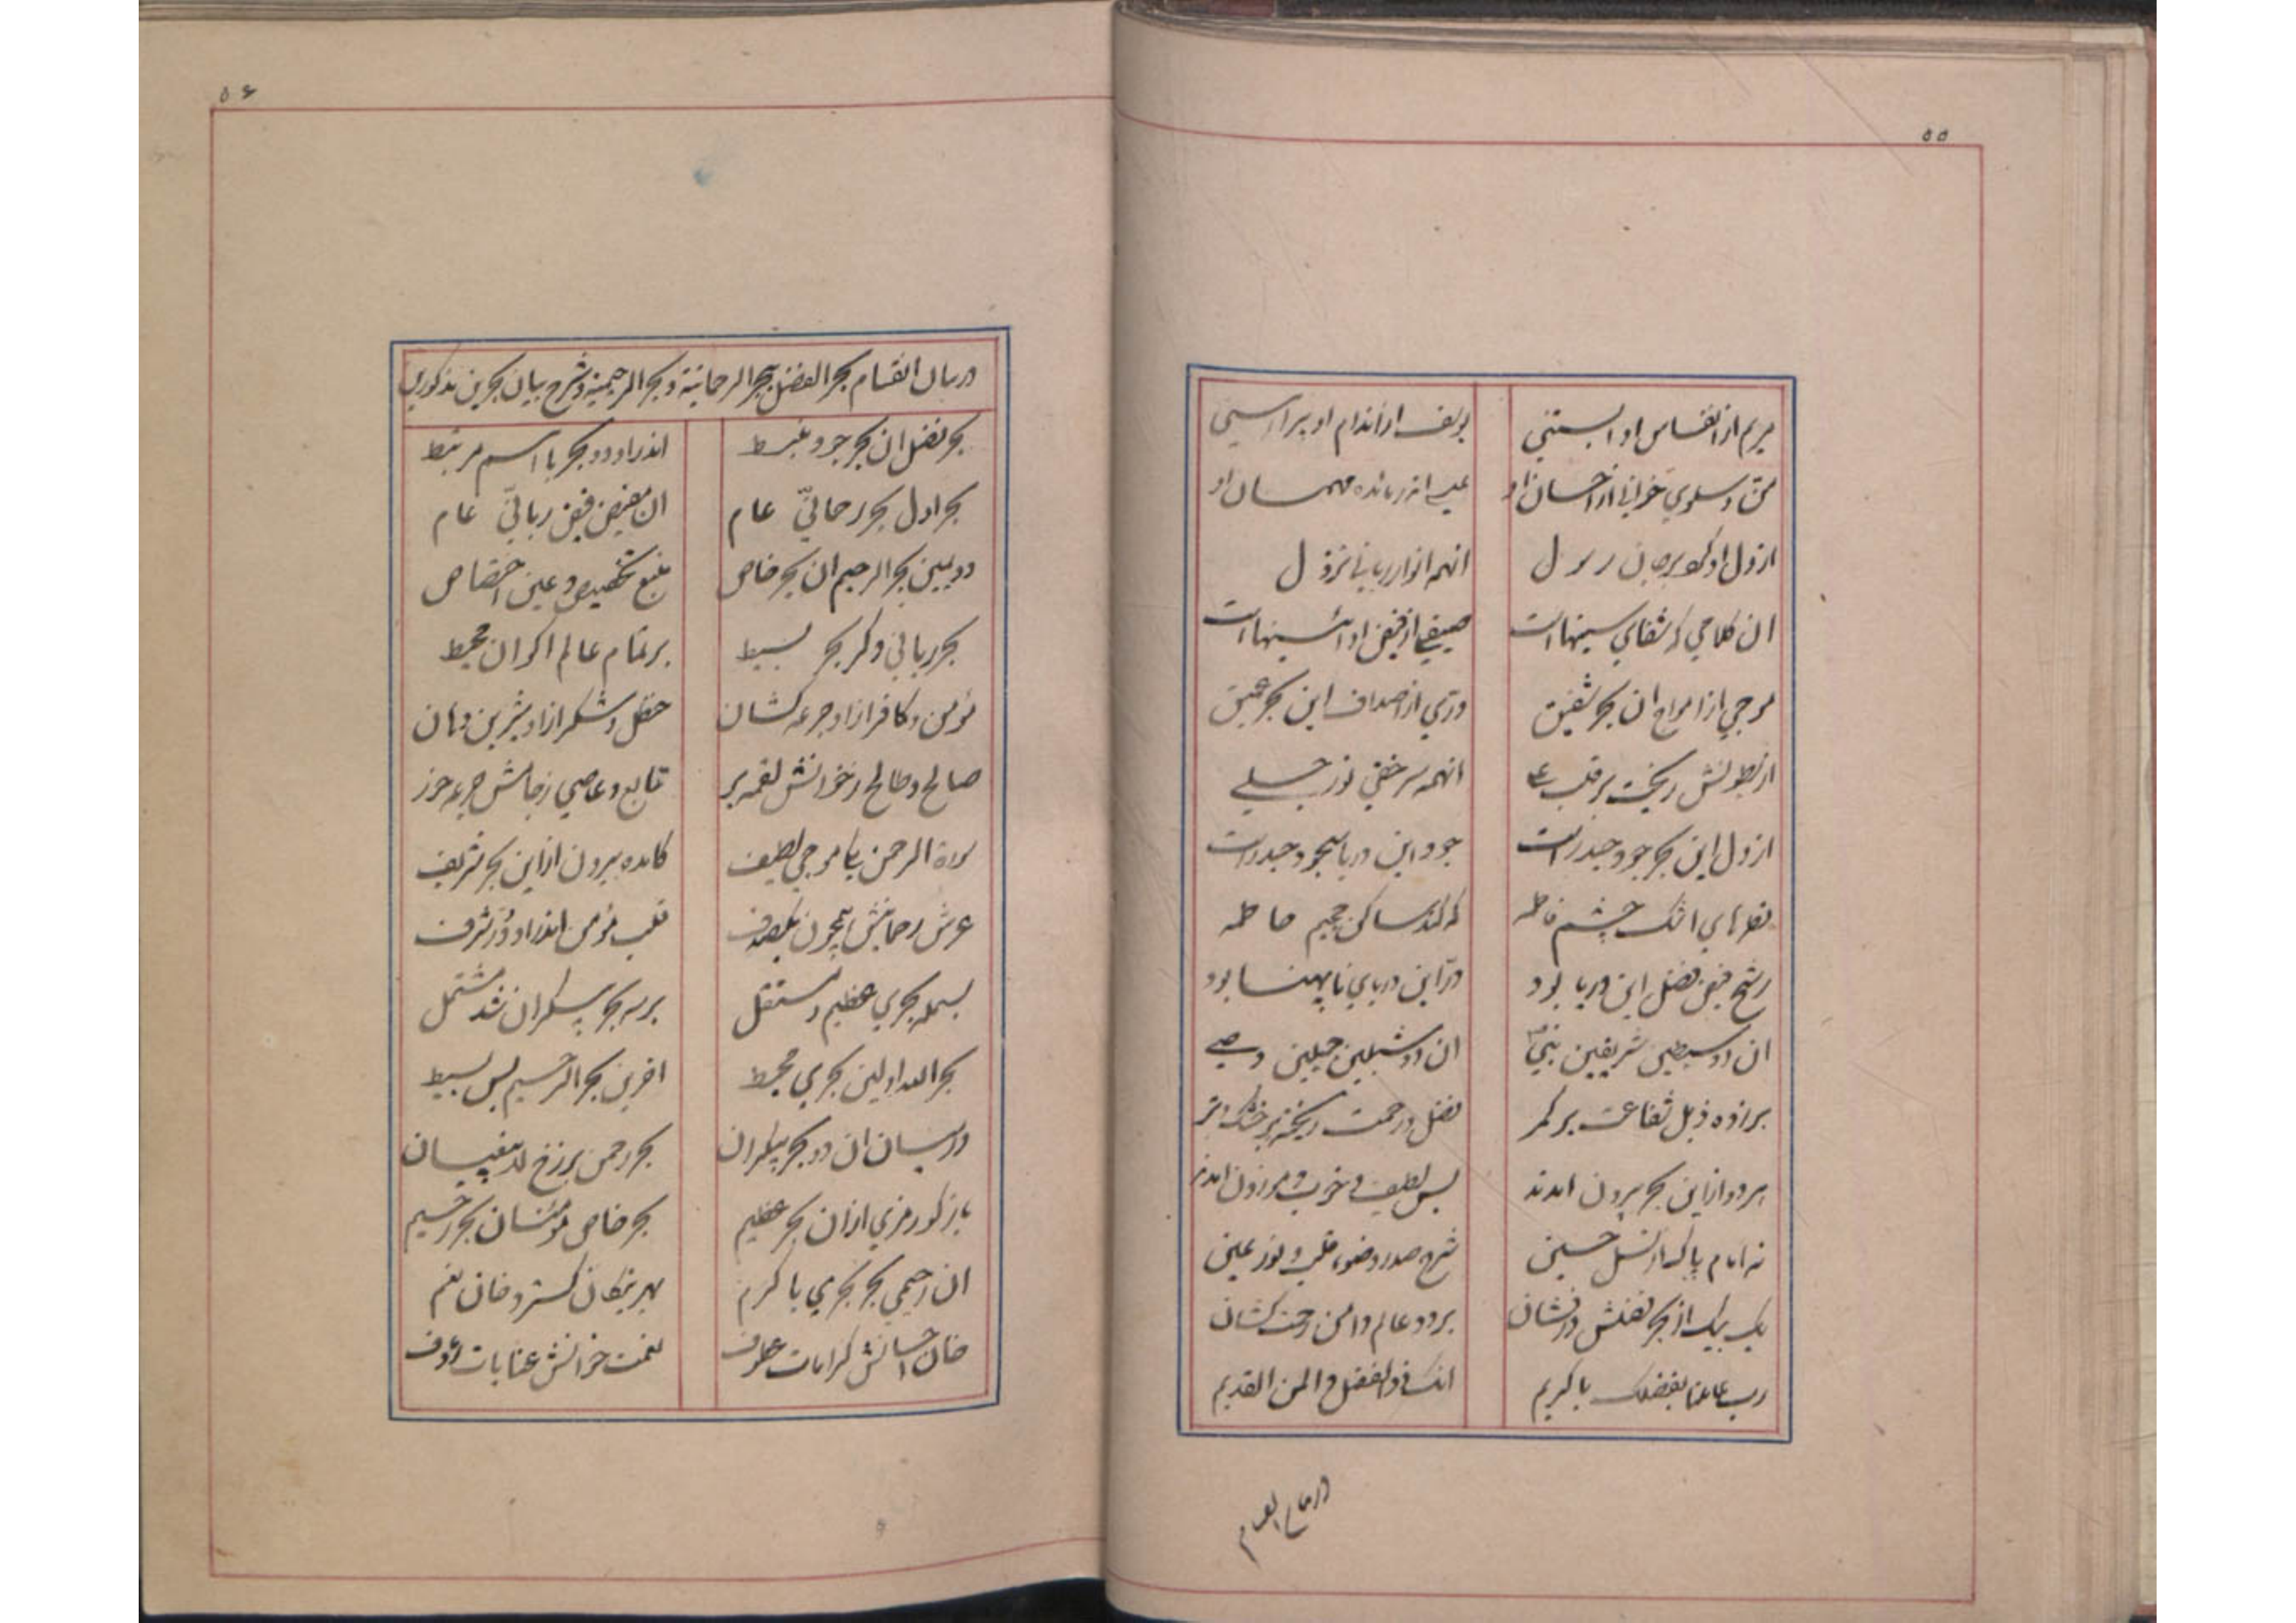 ۵۵
مریم از انفاس او ابستنی
یوسف از اندام او پیراهنی
من و سلوی خوانی از احسان او
عیسی از مائده مهمان او
از دل او کو بر جان رسل
انهمه انوار ربانی نزول
ان کلامی که شفای سینهاست
صیقلی از فیض او ائینهاست
موجی از امواج ان بحر شفیق
دری از اصداف این بحر عمیق
از بطونش ریخت بر قلب علی
انهمه سر خفی نور جلی
از دل این بحر جود حیدر است
جود این دریا بجود حیدر است
قطرهای اشک چشم فاطمه
که کند ساکن جحیم حاطمه
رشح فیض فضل این دریا بود
در این دریای ناپهنا بود
ان دو سبطین شریفین نبی
ان دو شبلین جمیلین وصی
بر زده ذیل شفاعت بر کمر
فضل و رحمت ریخته بر خشک و تر
هر دو از این بحر بیرون امدند
بس لطیف و خوب و موزون امدند
نه امام پاک از نسل حسین
شرح صدر و ضوء قلب و نور عین
یک بیک از بحر فضلش درفشان
بر دو عالم دامن رحمت کشان
رب عاملنا بفضلک یا کریم
انک ذو الفضل و المن القدیم
در بیان انقسام
۵۶
در بیان انقسام بحر الفضل ببحر الرحمانیة و بحر الرحیمیة و شرح بیان بحرین مذکورین
بحر فضل ان بحر جود منبسط
اندر او دو بحر با اسم مرتبط
بحر اول بحر رحمانی عام
ان مفیض فیض ربانی عام
دویمین بحر الرحیم ان بحر خاص
منبع تخصیص و عین اختصاص
بحر ربانی و کر بحر بسیط
بر تمام عالم اکوان محیط
مؤمن و کافر از او جرعه کشان
حنظل و شکر از او شیرین دهان
صالح و طالح ز خوانش لقمه بر
تابع و عاصی ز جامش جرعه خور
سورة الرحمن یکی موجی لطیف
کامده بیرون از این بحر شریف
عرش رحمانیش همچون یکصدف
قلب مؤمن اندر او در شرف
بسمله بحری عظیم و مستقل
بر سه بحر بیکران شد مشتمل
بحر الله اولین بحری محیط
اخرین بحر الرحیم بس بسیط
در میان ان دو بحر بیکران
بحر رحمن برزخ لا یبغیان
باز کو رمزی از ان بحر عظیم
بحر خاص مؤمنان بحر رحیم
ان رحیمی بحر بحری با کرم
بهر نیکان کسترد خان نعم
خان احسانش کرامات علوف
نعمت خوانش عنایات رؤف